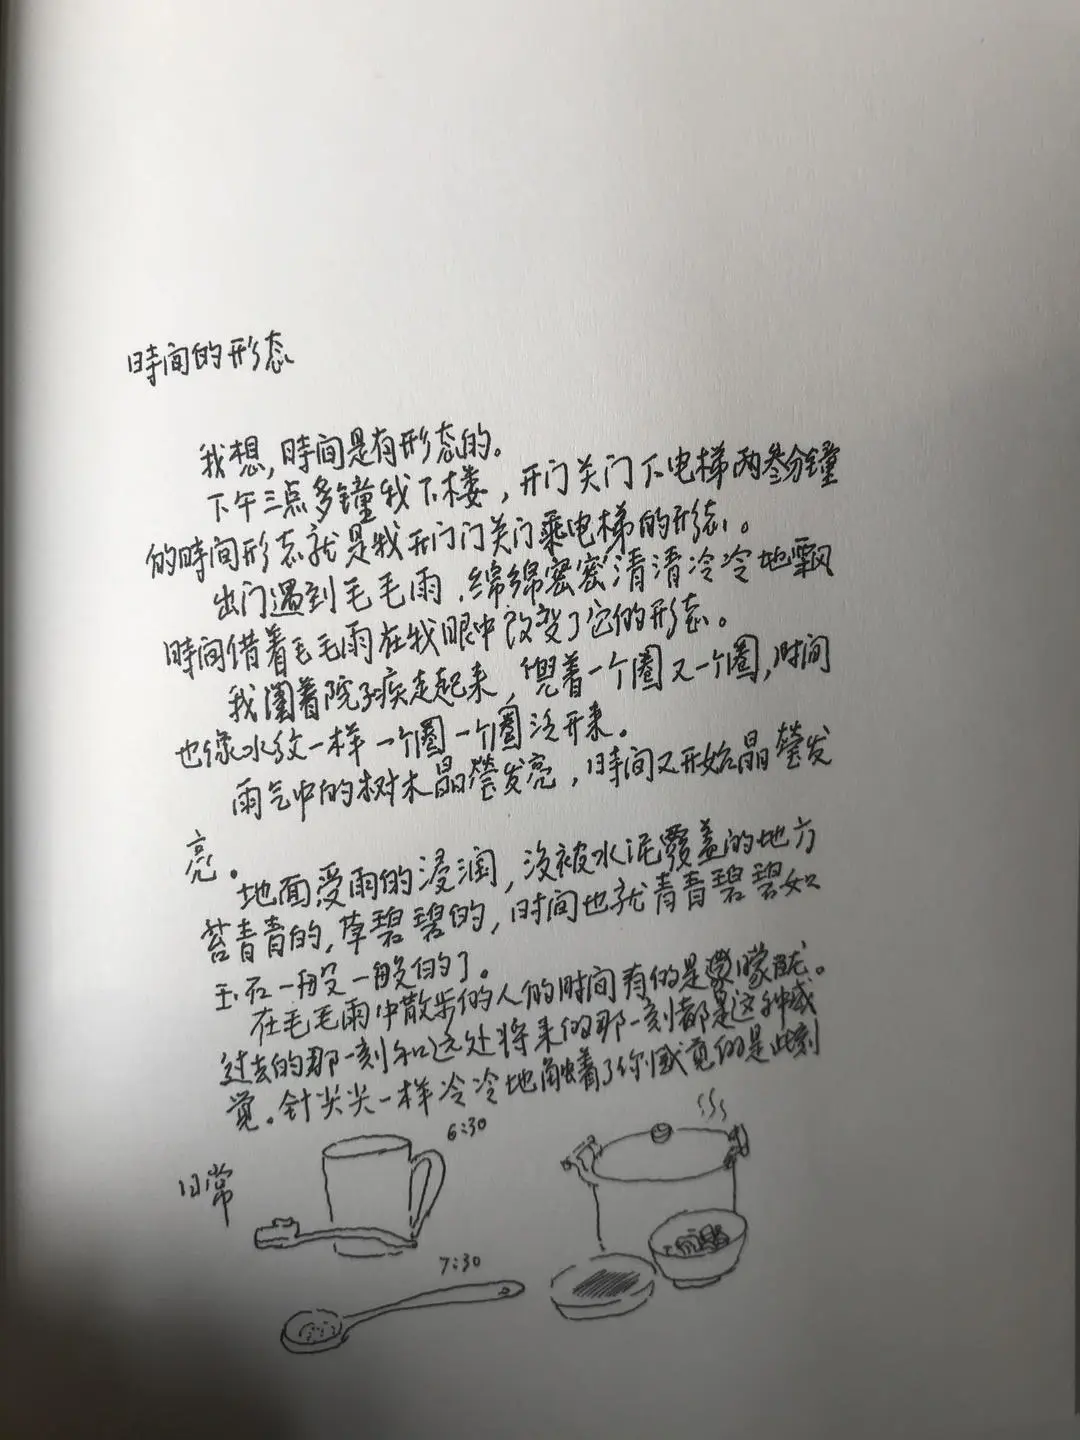 時间的形态
我想,時间是有形态的。
下午三点多鐘我下楼,开门关门下电梯两叁分鐘
的時间形态就是我开门门关门乘电梯的形态。
出门遇到毛毛雨,绵绵密密清清冷冷地飘
時间借着毛毛雨在我眼中改变了它的形态。
我围着院子疾走起来,兜着一个圈又一个圈,时间
也像水纹一样一个圈一个圈泛开来。
雨气中的树木晶莹发亮,時间又开始晶莹发
亮。
地面受雨的浸润,没被水泥覆盖的地方
苔青青的,草碧碧的,时间也就青青碧碧如
玉石一般一般的了。
在毛毛雨中散步的人的时间有的是朦胧。
过去的那一刻和远处将来的那一刻都是这种感
觉。针尖尖一样冷冷地触着了你感觉的是此刻
6:30
日常
7:30